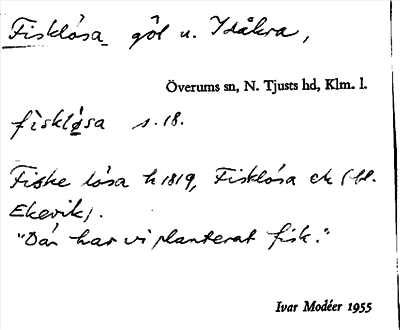 Fisklösa göl u. Ydåkra,
Överums sn, N. Tjusts hd, Klm. l.
fiskløsa s. 18.
Fiske lösa h 1819, Fisklösa ek (Hl.
Ekevik).
"Där har vi planterat fisk."
Ivar Modéer 1955